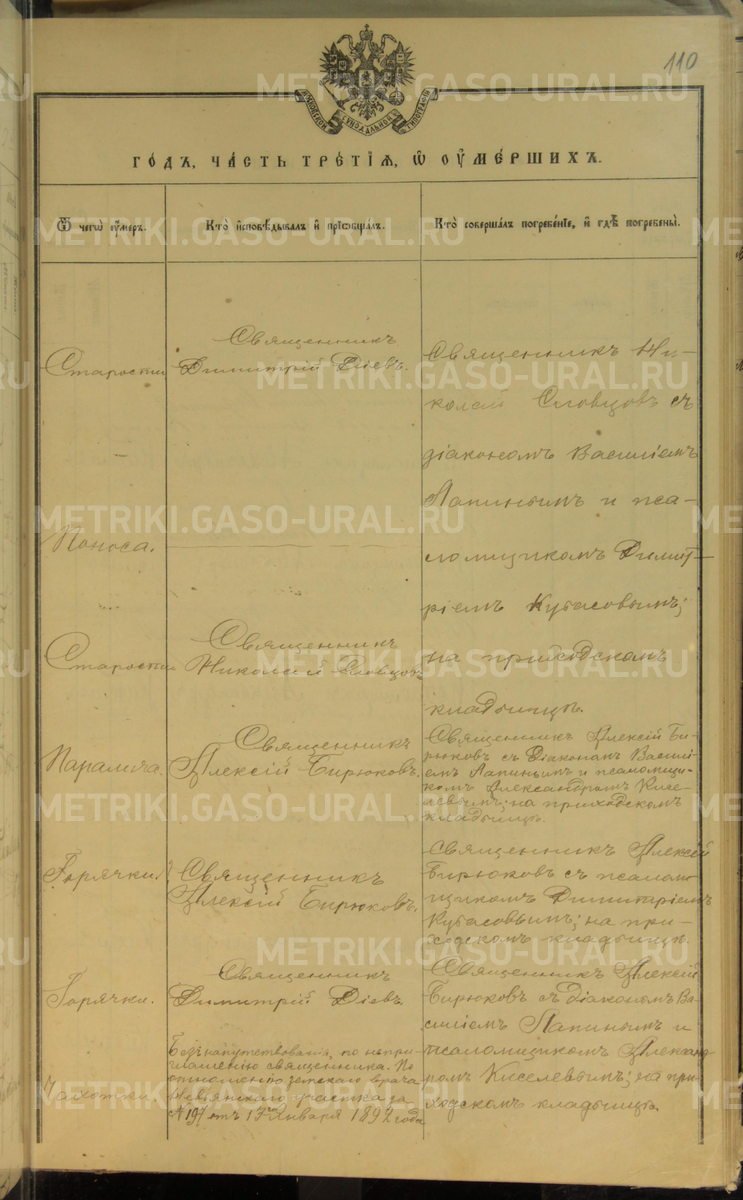 110
МОСКОВСКОЙ СѴНОДАЛЬНОЙ ТИПОГРАФІИ
ГО́ДЪ, ЧА́СТЬ ТРЕ́ТІѦ, Ѡ ОУ҆МЕ́РШИХЪ.
Ѿ чегѡ̀ оу҆́меръ.
Кто̀ и҆сповѣ́дывалъ и҆ прїѻбща́лъ.
Кто̀ соверша́лъ погребе́нїе, и҆ гдѣ̀ погребены̀.
Старости
Священникъ
Димитрій Діевъ.
Священникъ Ни-
колай Словцовъ съ
діакономъ Василіемъ
Лапинымъ и пса-
ломщикомъ Димит-
ріемъ Кутасовымъ;
на приходскомъ
кладбищѣ.
Поноса.
Старости
Священникъ
Николай Словцовъ
Паралича.
Священникъ
Алексій Бирюковъ.
Священникъ Алексій Би-
рюковъ съ діакономъ Василі-
емъ Лапинымъ и псаломщи-
комъ Александромъ Кисе-
левымъ; на приходскомъ
кладбищѣ.
Горячки.
Священникъ
Алексій Бирюковъ.
Священникъ Алексій
Бирюковъ съ псалом-
щикомъ Димитріемъ
Кутасовымъ; на при-
ходскомъ кладбищѣ.
Горячки.
Священникъ
Димитрій Діевъ.
Священникъ Алексій
Бирюковъ съ діакономъ Ва-
силіемъ Лапинымъ и
псаломщикомъ Александ-
ромъ Киселевымъ; на при-
ходскомъ кладбищѣ.
Чахотки.
Безъ напутствованія, по непри-
глашенію священника. По
отношенію земскаго врача
участка за
№ 197 отъ 17го Января 1892 года
METRIKI.GASO-URAL.RU